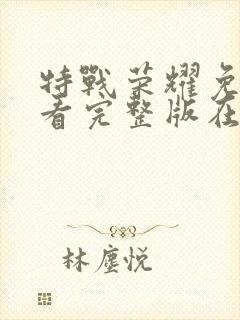 特戰荣耀免
看完整版在
林塵悦